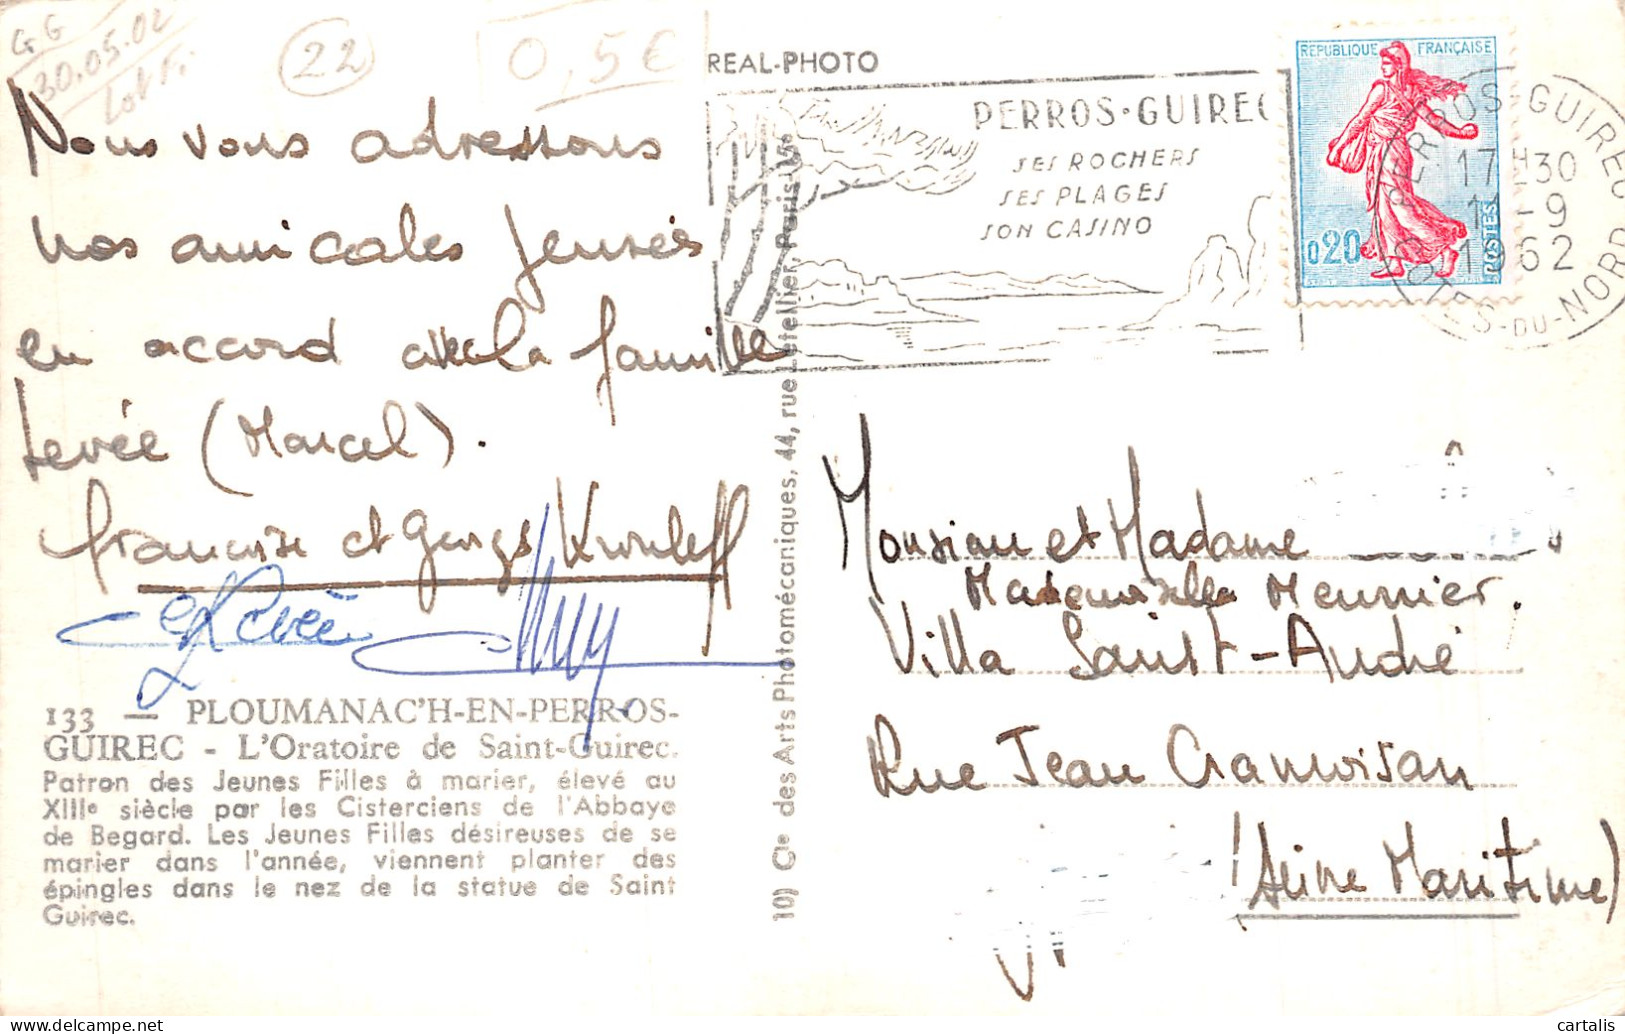 GG
30.05.02
Lot Fr.
22
0,5€
REAL-PHOTO
PERROS-GUIREC
SES ROCHERS
SES PLAGES
SON CASINO
REPUBLIQUE FRANÇAISE
0,20
POSTES
PERROS-GUIREC
17H30
-9
1962
CÔTES-DU-NORD
Nous vous adressons
nos amicales pensées
en accord avec la famille
Levée (Marcel).
Françoise et Georges
Levée
Monsieur et Madame
Mademoiselle Meunier.
Villa Saint-André
Rue Jean Cramoisan
(Seine Maritime)
133 — PLOUMANAC'H-EN-PERROS-
GUIREC - L'Oratoire de Saint-Guirec.
Patron des Jeunes Filles à marier, élevé au
XIIIe siècle par les Cisterciens de l'Abbaye
de Begard. Les Jeunes Filles désireuses de se
marier dans l'année, viennent planter des
épingles dans le nez de la statue de Saint
Guirec.
10) Cie des Arts Photomécaniques, 44, rue Letellier, Paris-15e
cartalis
www.delcampe.net